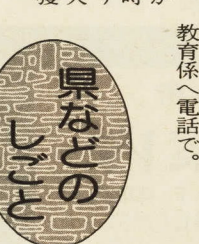 教育係へ電話で。
県などの
しごと